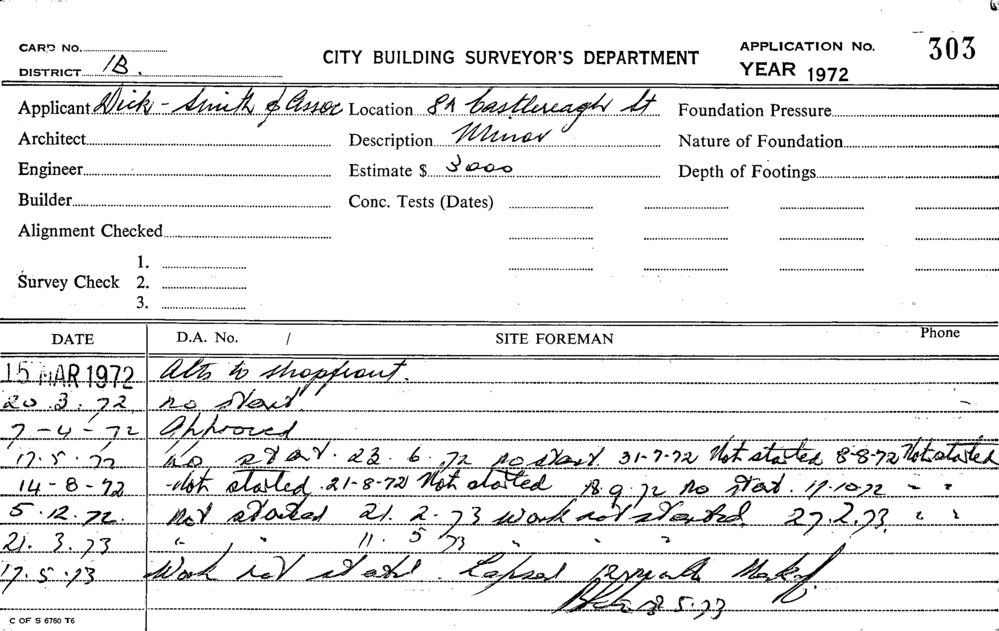 CARD NO.
CITY BUILDING SURVEYOR'S DEPARTMENT
APPLICATION No. 303
DISTRICT 1B.
YEAR 1972
Applicant Dick - Smith & Assoc Location 8A Castlereagh St Foundation Pressure
Architect Description Minor Nature of Foundation
Engineer Estimate $ 3000 Depth of Footings
Builder Conc. Tests (Dates)
Alignment Checked
1.
Survey Check 2.
3.
DATE D.A. No. / SITE FOREMAN Phone
15 MAR 1972 Alts to shopfront.
20.3.72 no start.
7-4-72 Approved
17.5.72 No start. 23.6.72 no start. 31-7-72 Not started 8-8-72 Not started
14-8-72 Not started. 21-8-72 Not started 18.9.72 No start. 17.10.72 " "
5.12.72. Not started 21.2.73 Work not started. 27.2.73. " "
21.3.73 " " 11.5.73 " " "
17.5.73 Work not started. Lapsed Mark off.
8.5.73
C OF S 6760 T6